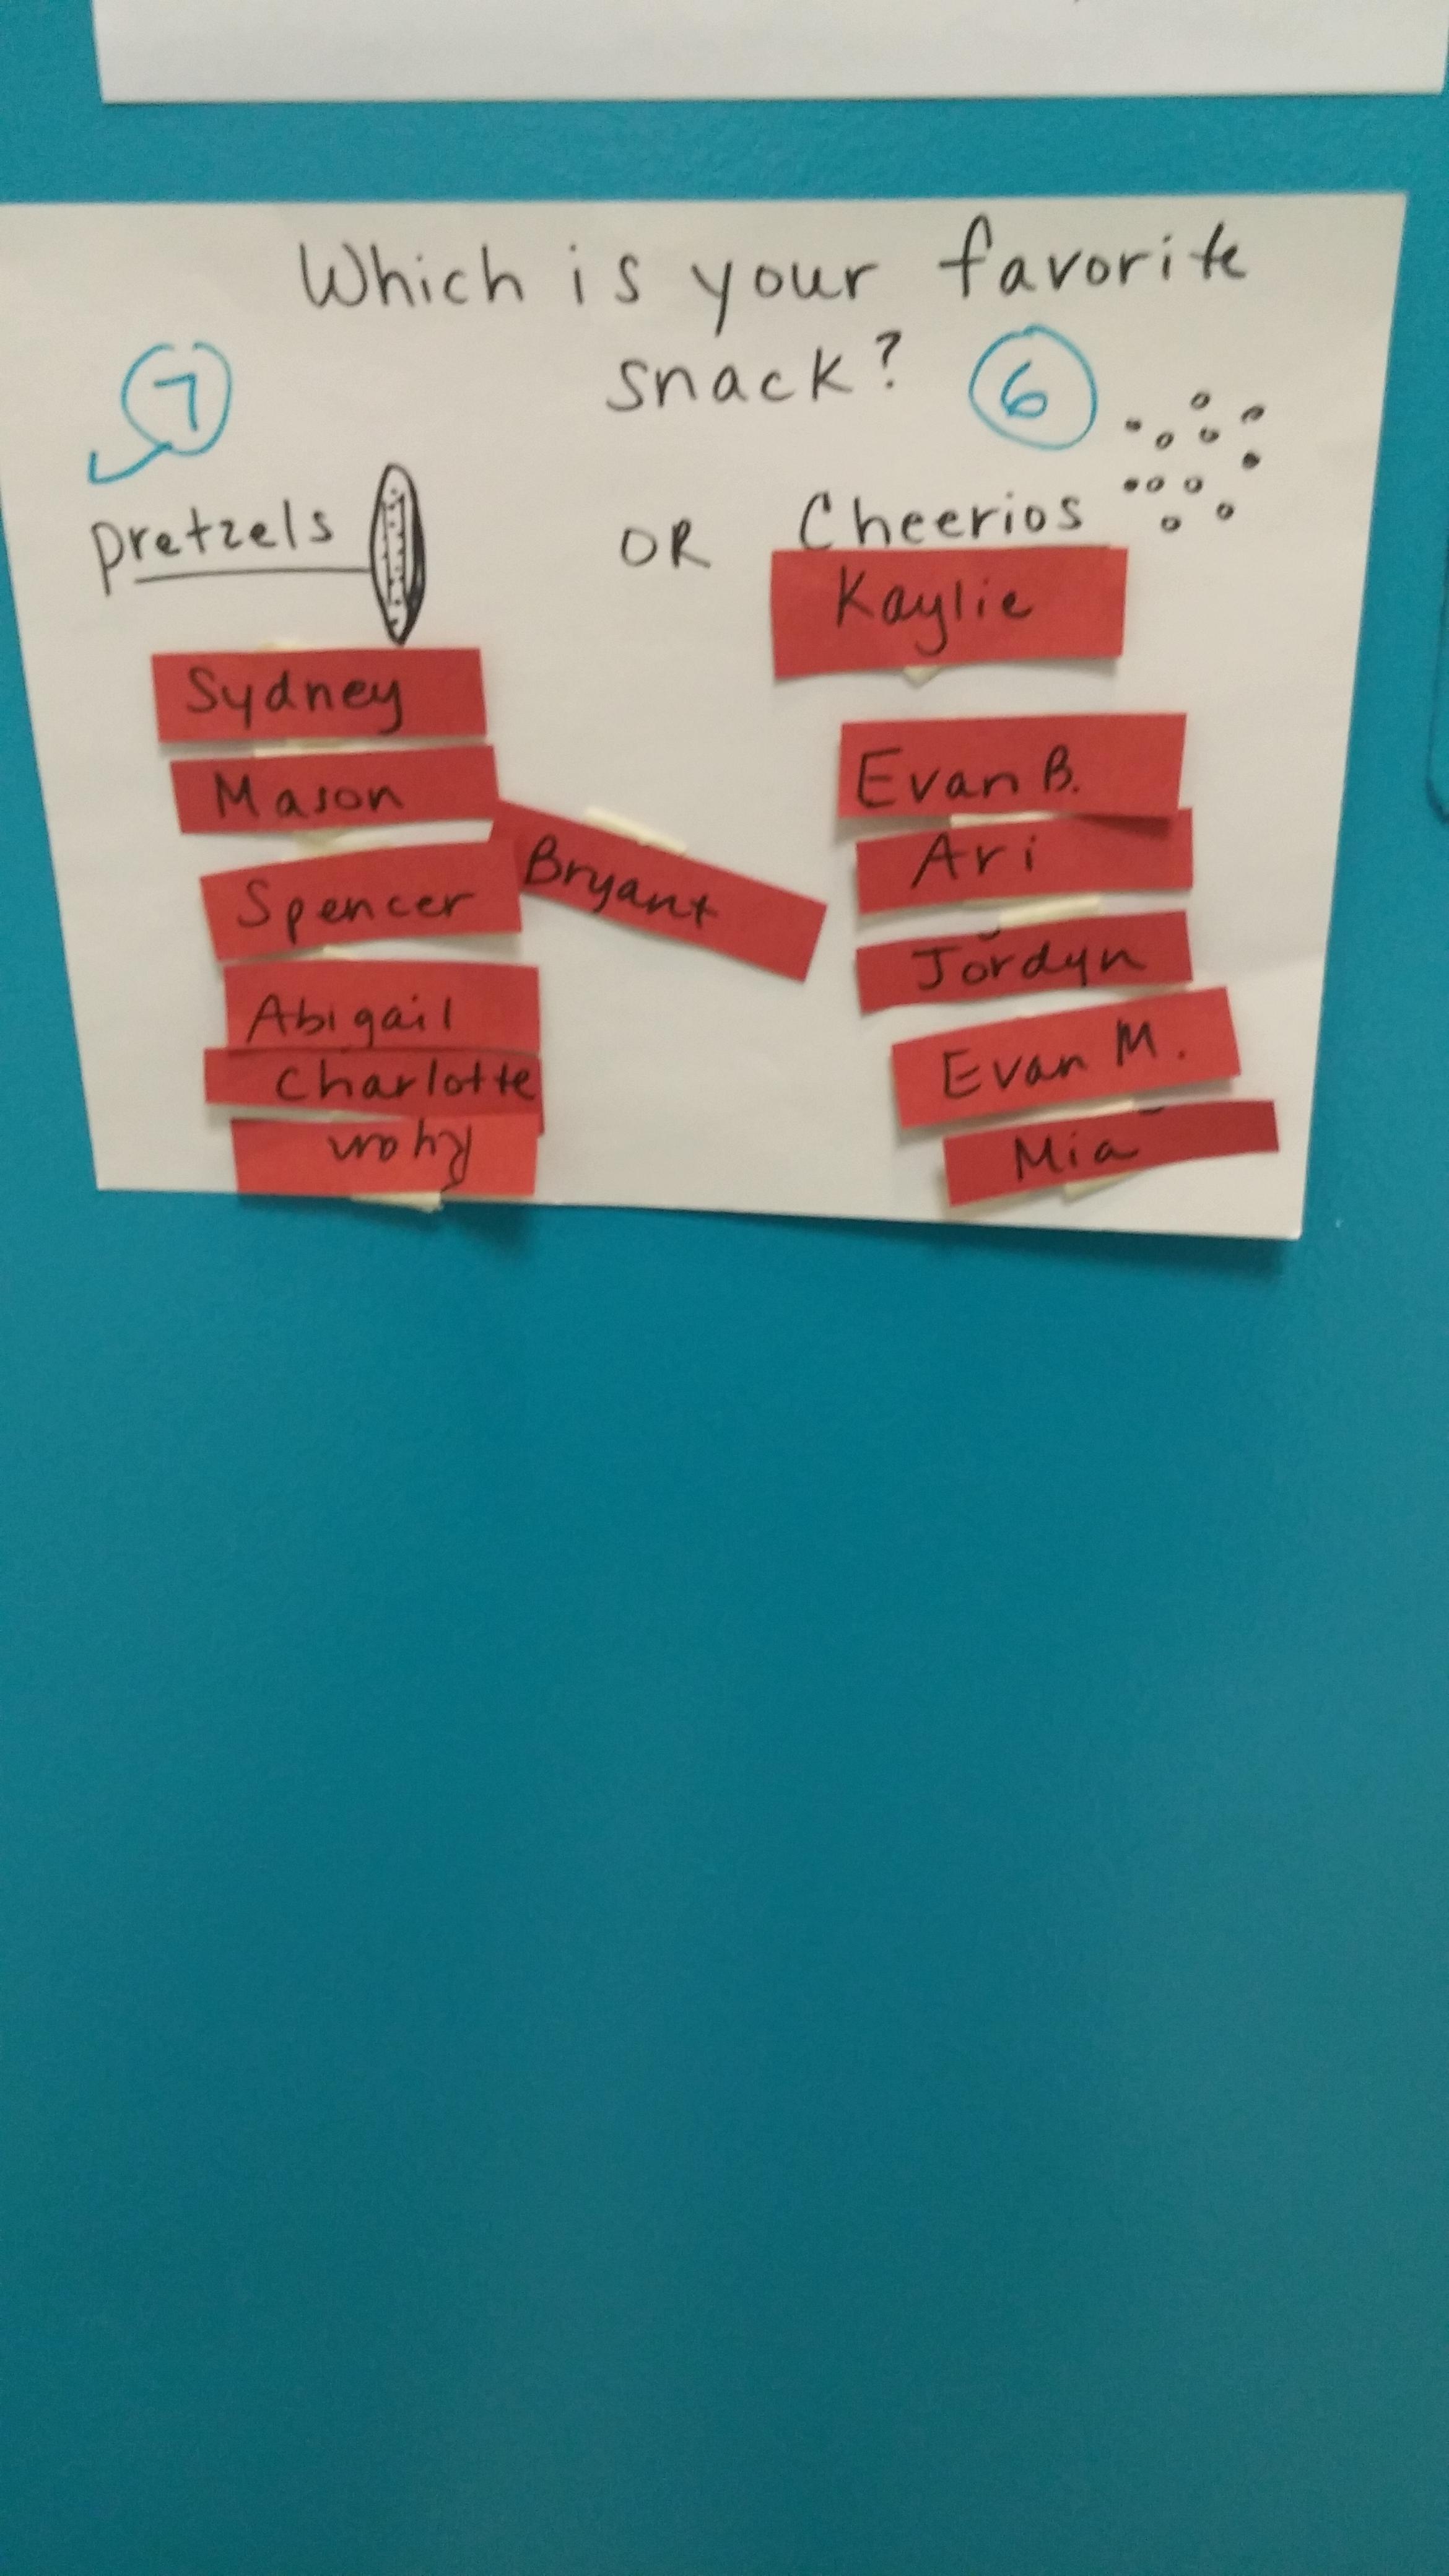 Which is your favorite
snack?
7
6
pretzels OR Cheerios
Kaylie
Sydney
Mason
Spencer
Bryant
Abigail
Charlotte
Ryan
Evan B.
Ari
Jordyn
Evan M.
Mia